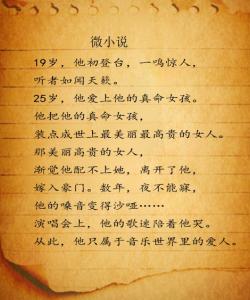 微小说
19岁，他初登台，一鸣惊人，
听者如闻天籁。
25岁，他爱上他的真命女孩。
他把他的真命女孩，
装点成世上最美丽最高贵的女人。
那美丽高贵的女人，
渐觉他配不上她，离开了他，
嫁入豪门。数年，夜不能寐，
他的嗓音变得沙哑……
演唱会上，他的歌迷陪着他哭。
从此，他只属于音乐世界里的爱人。